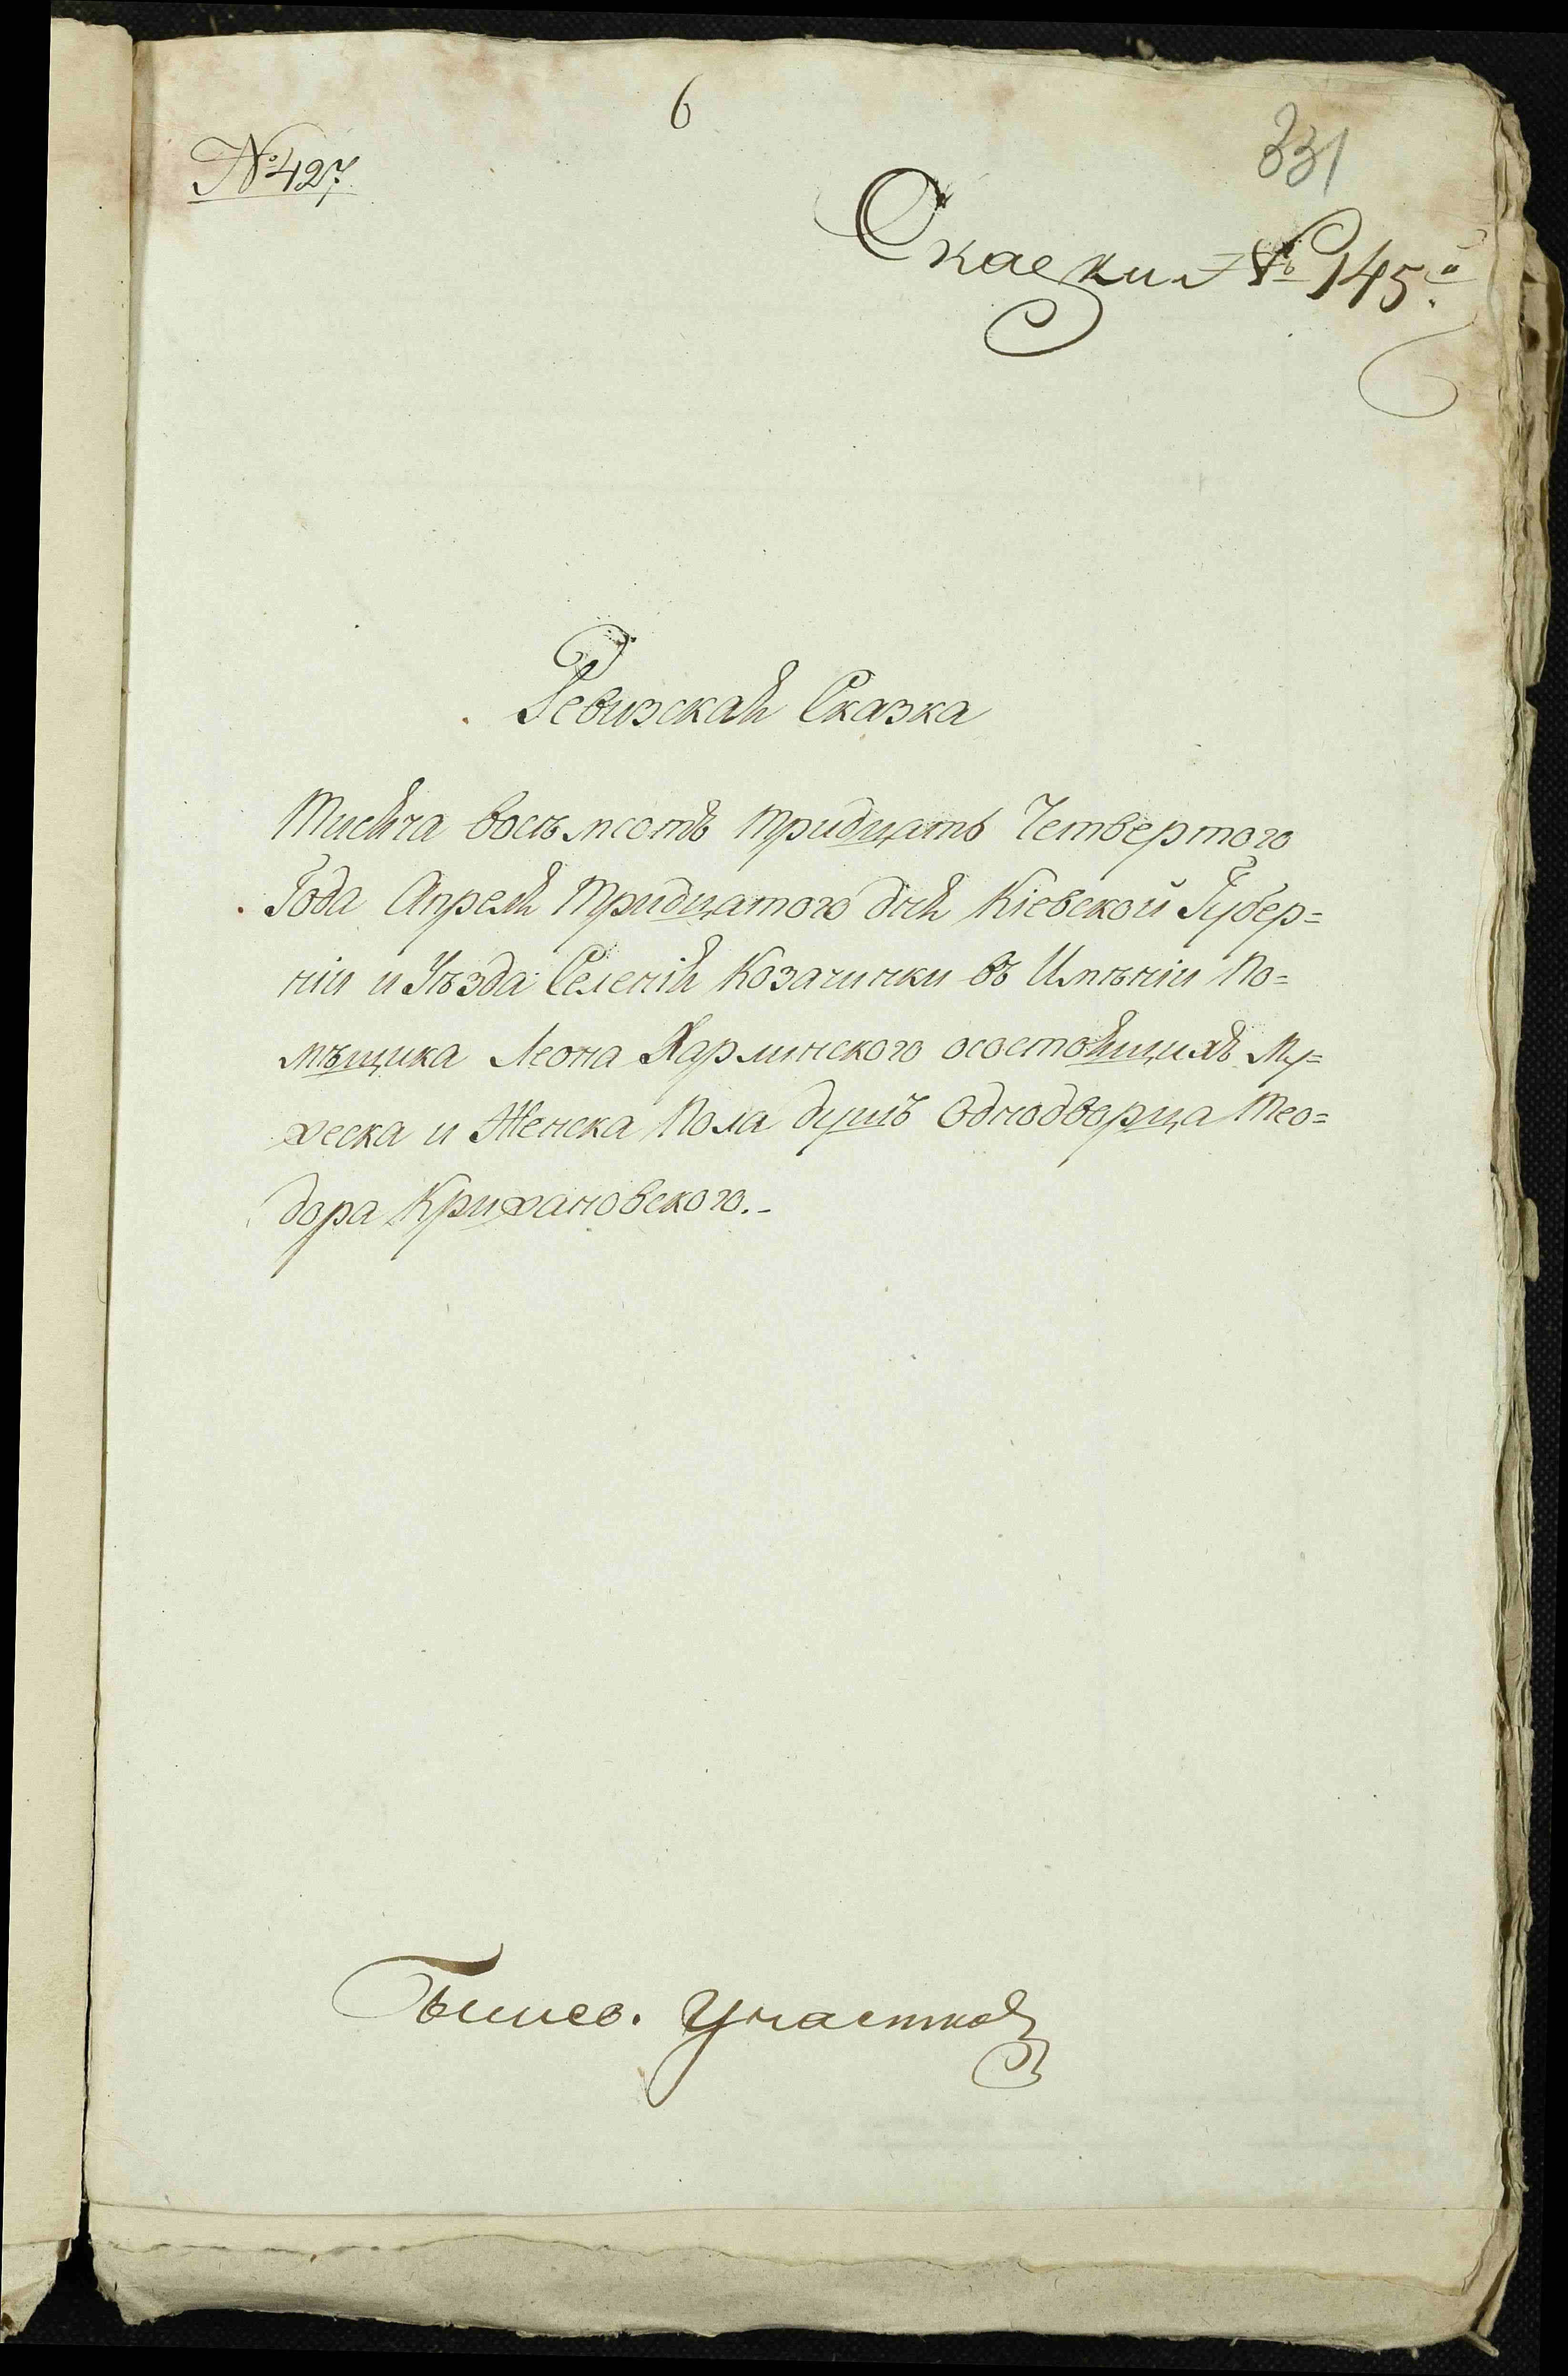 6
331
№427.
Скаски № 145й
Ревизская Сказка
Тисяча восъмсотъ тридцать Четвертого
Года Апреля Тридцатого дня Кіевской Губер=
ніи и Уѣзда Селенія Козачинки въ Имѣніи По=
мѣщика Леона Харлинского осостоящихъ Му=
жеска и Женска Пола душъ Однодворца Тео=
дора Крижановского.-
Бишев. Участка